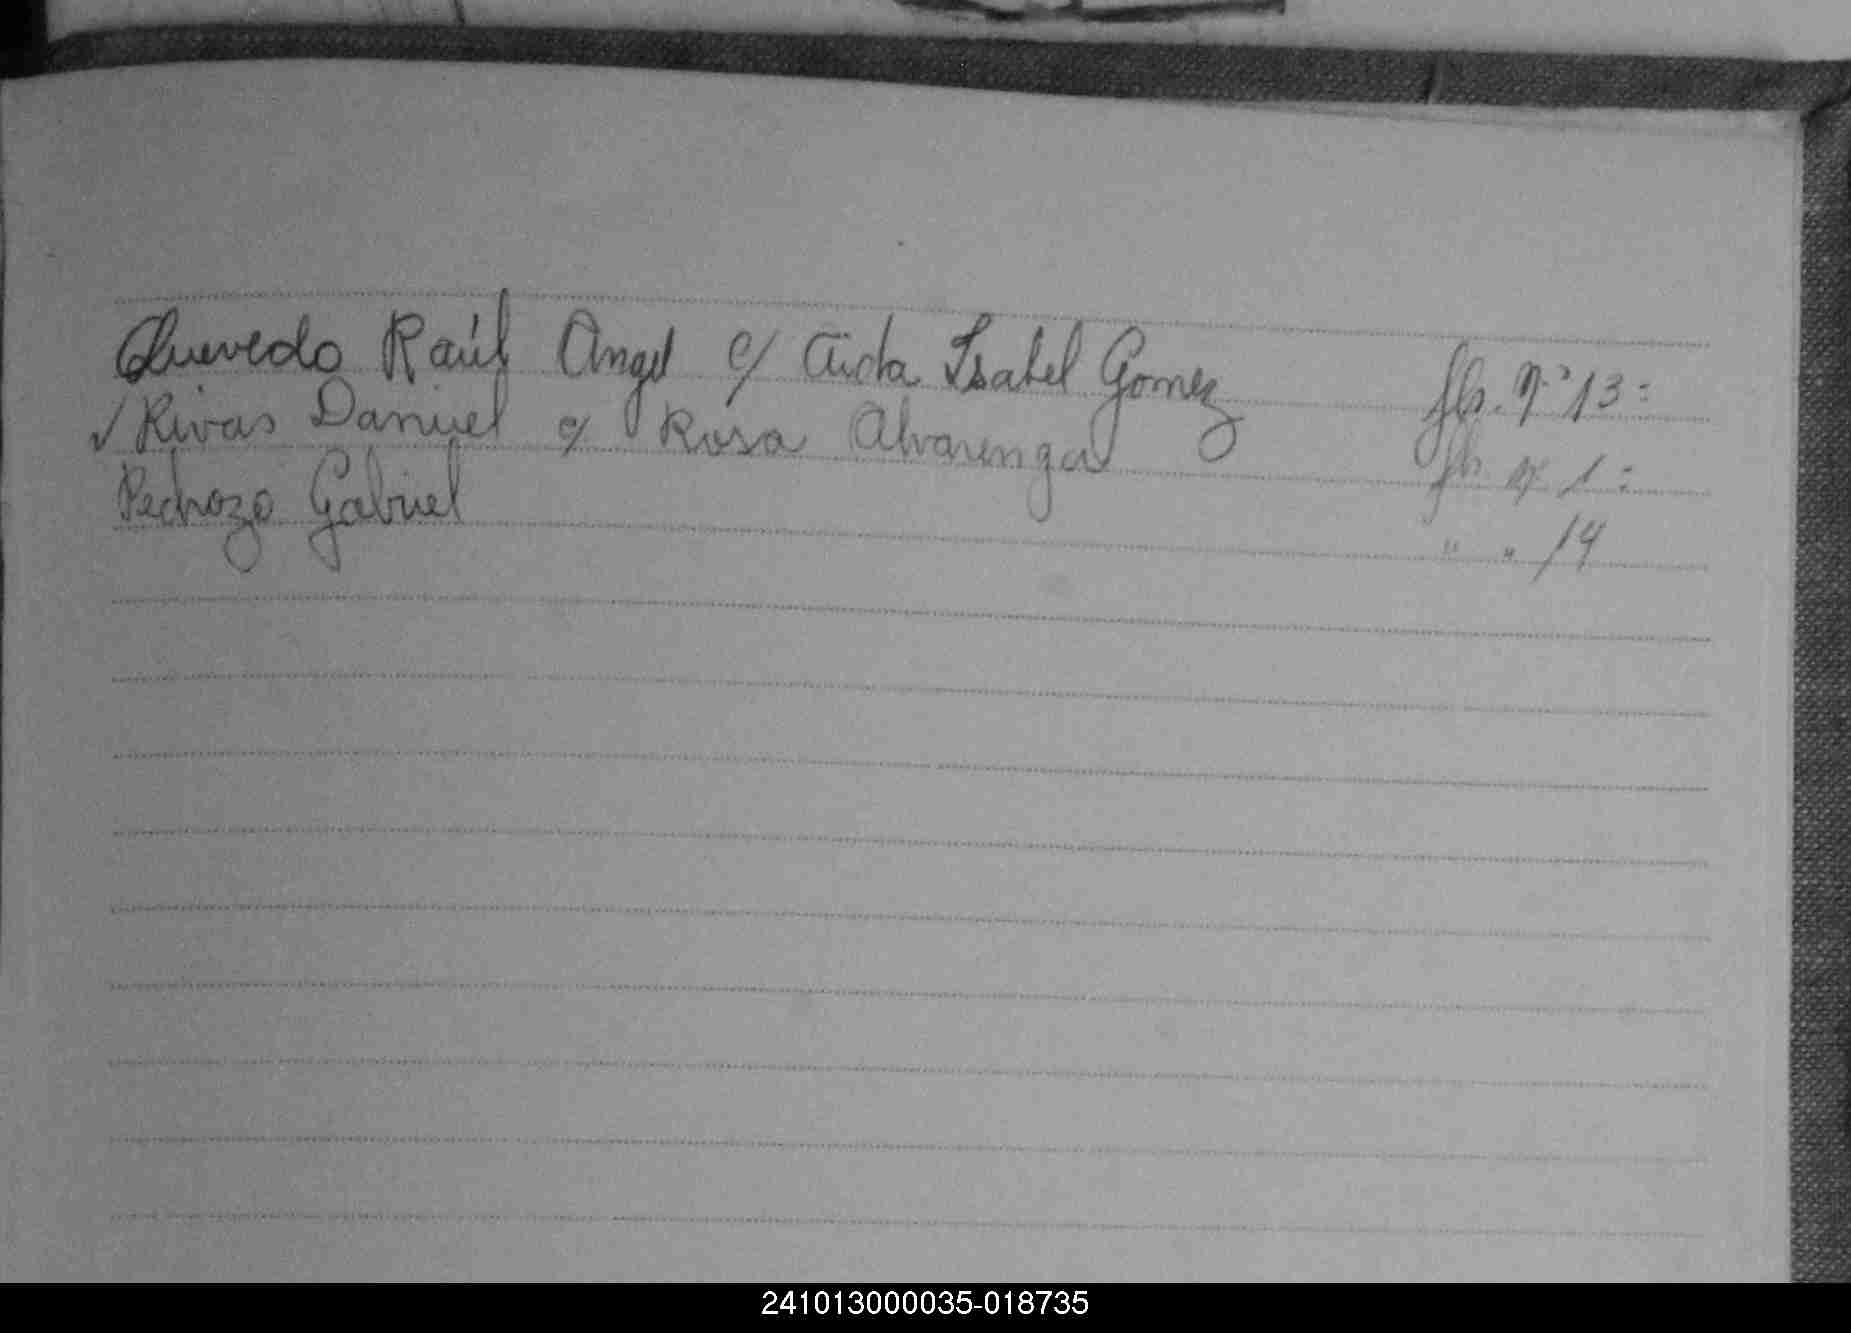 Quevedo Raúl Angel c/ Aida Isabel Gomez fls. Nº 13=
✓ Rivas Daniel c/ Rosa Alvarenga fls. Nº 1=
Pedrozo Gabriel " " 14
241013000035-018735